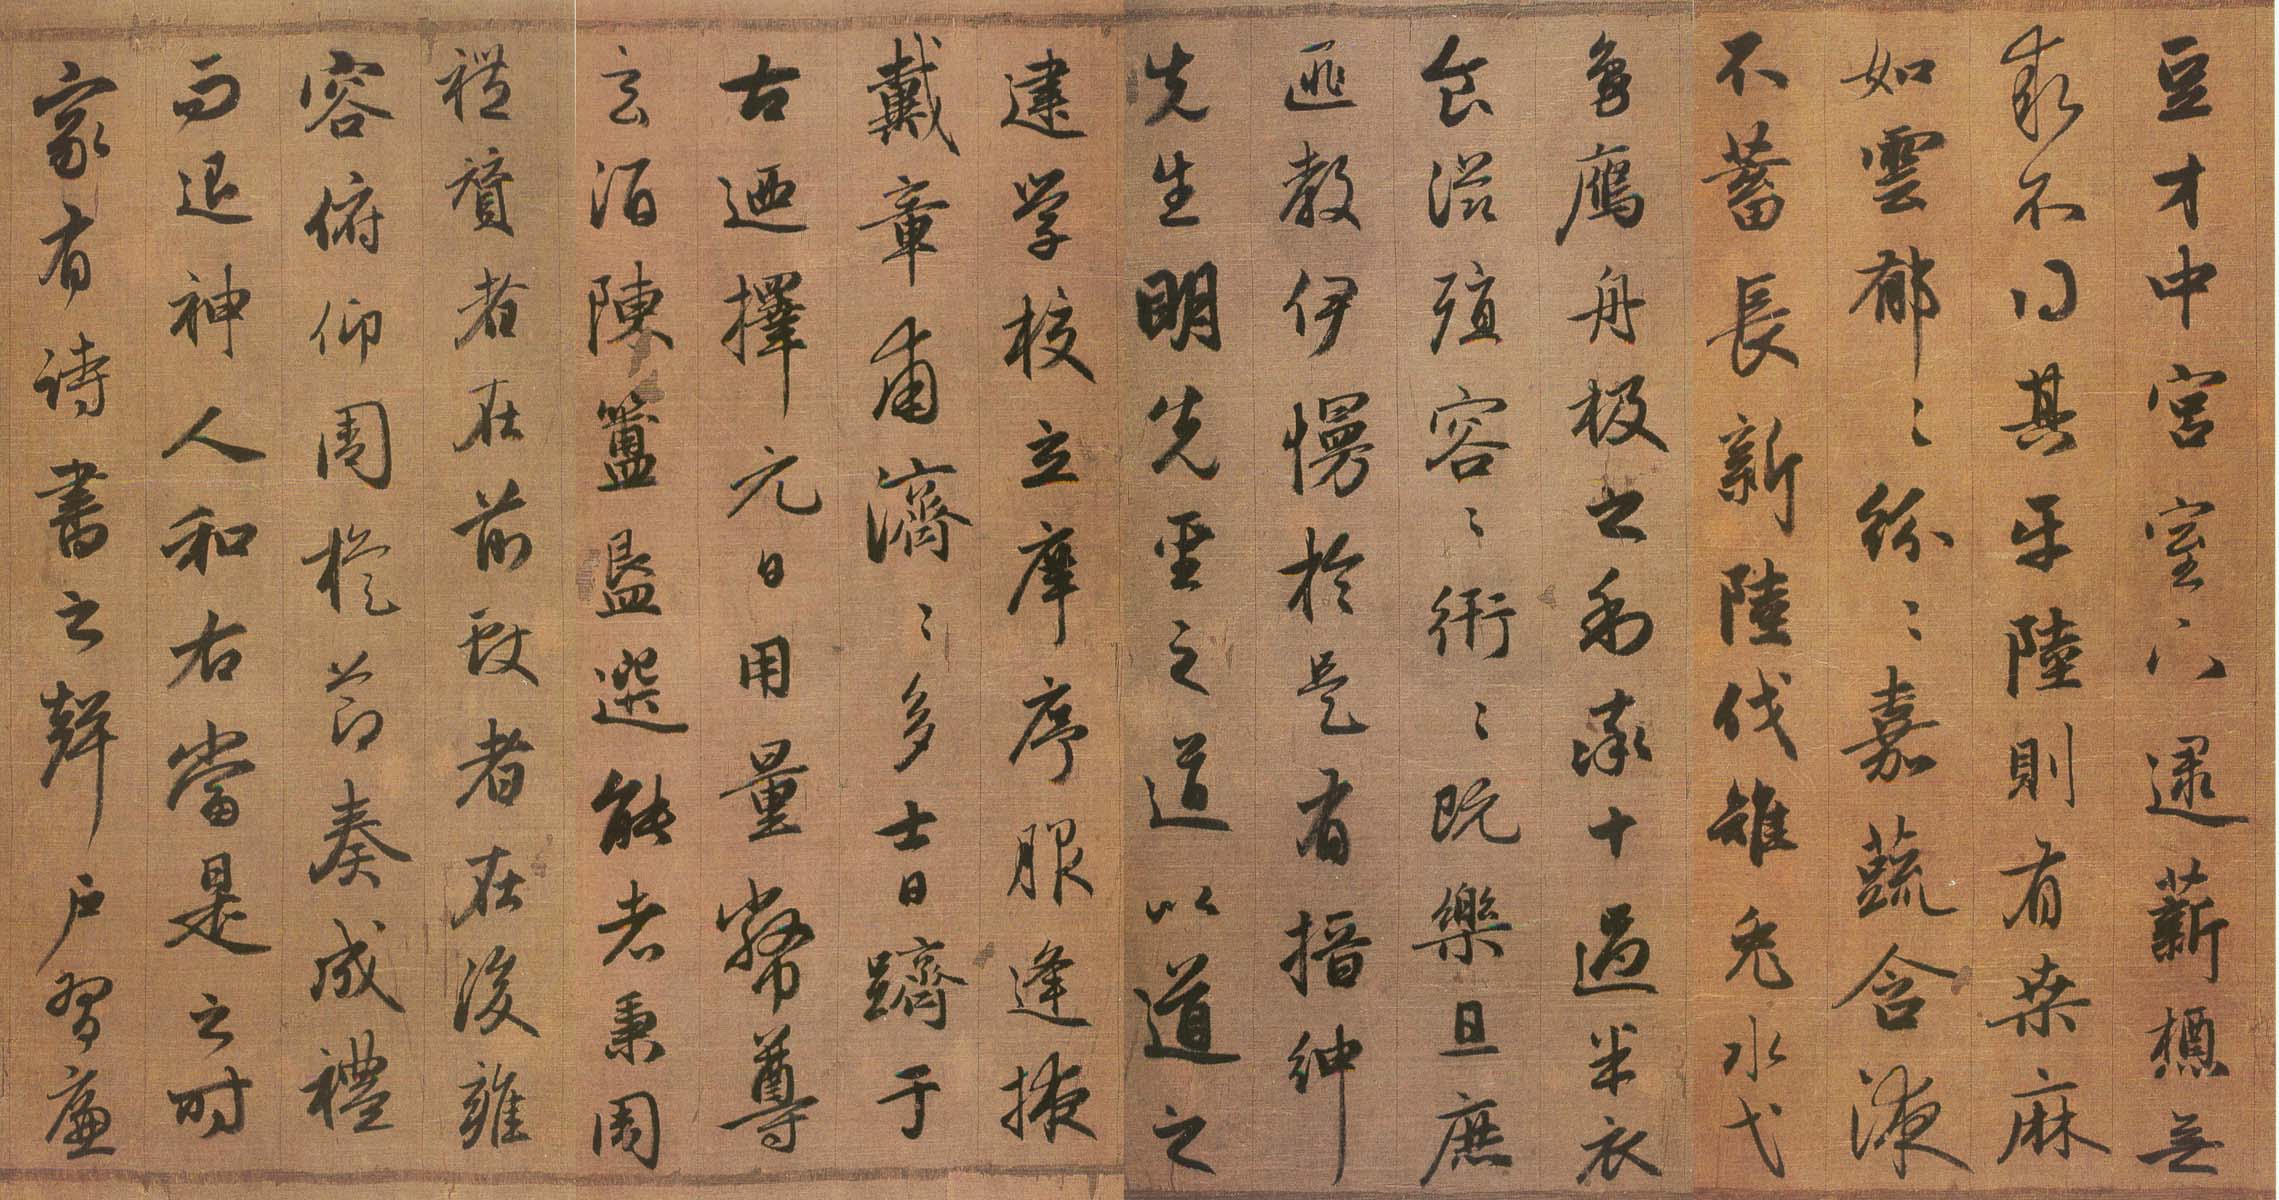 豆才中宮室下逮薪槱無
求不得其平陸則有桑麻
如雲郁〻紛〻嘉蔬含液
不蓄長新陸伐雉兔水弋
鳧鴈舟楫之利率十過半衣
食滋殖容〻衎〻既樂且庶
匪教伊慢於是有搢紳
先生明先聖之道以道之
建學校立庠序服逢掖
戴章甫濟〻多士日躋于
古迺擇元日用量幣尊
玄酒陳簠簋選能者秉周
禮贊者在前致者在後雍
容俯仰周旋節奏成禮
而退神人和右當是之時
家有詩書之聲戶習廉